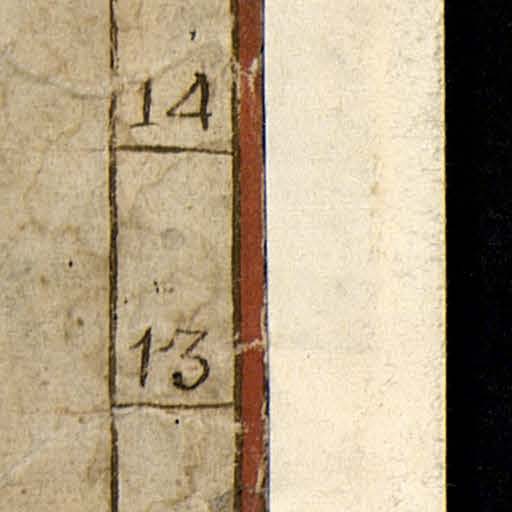 14
13